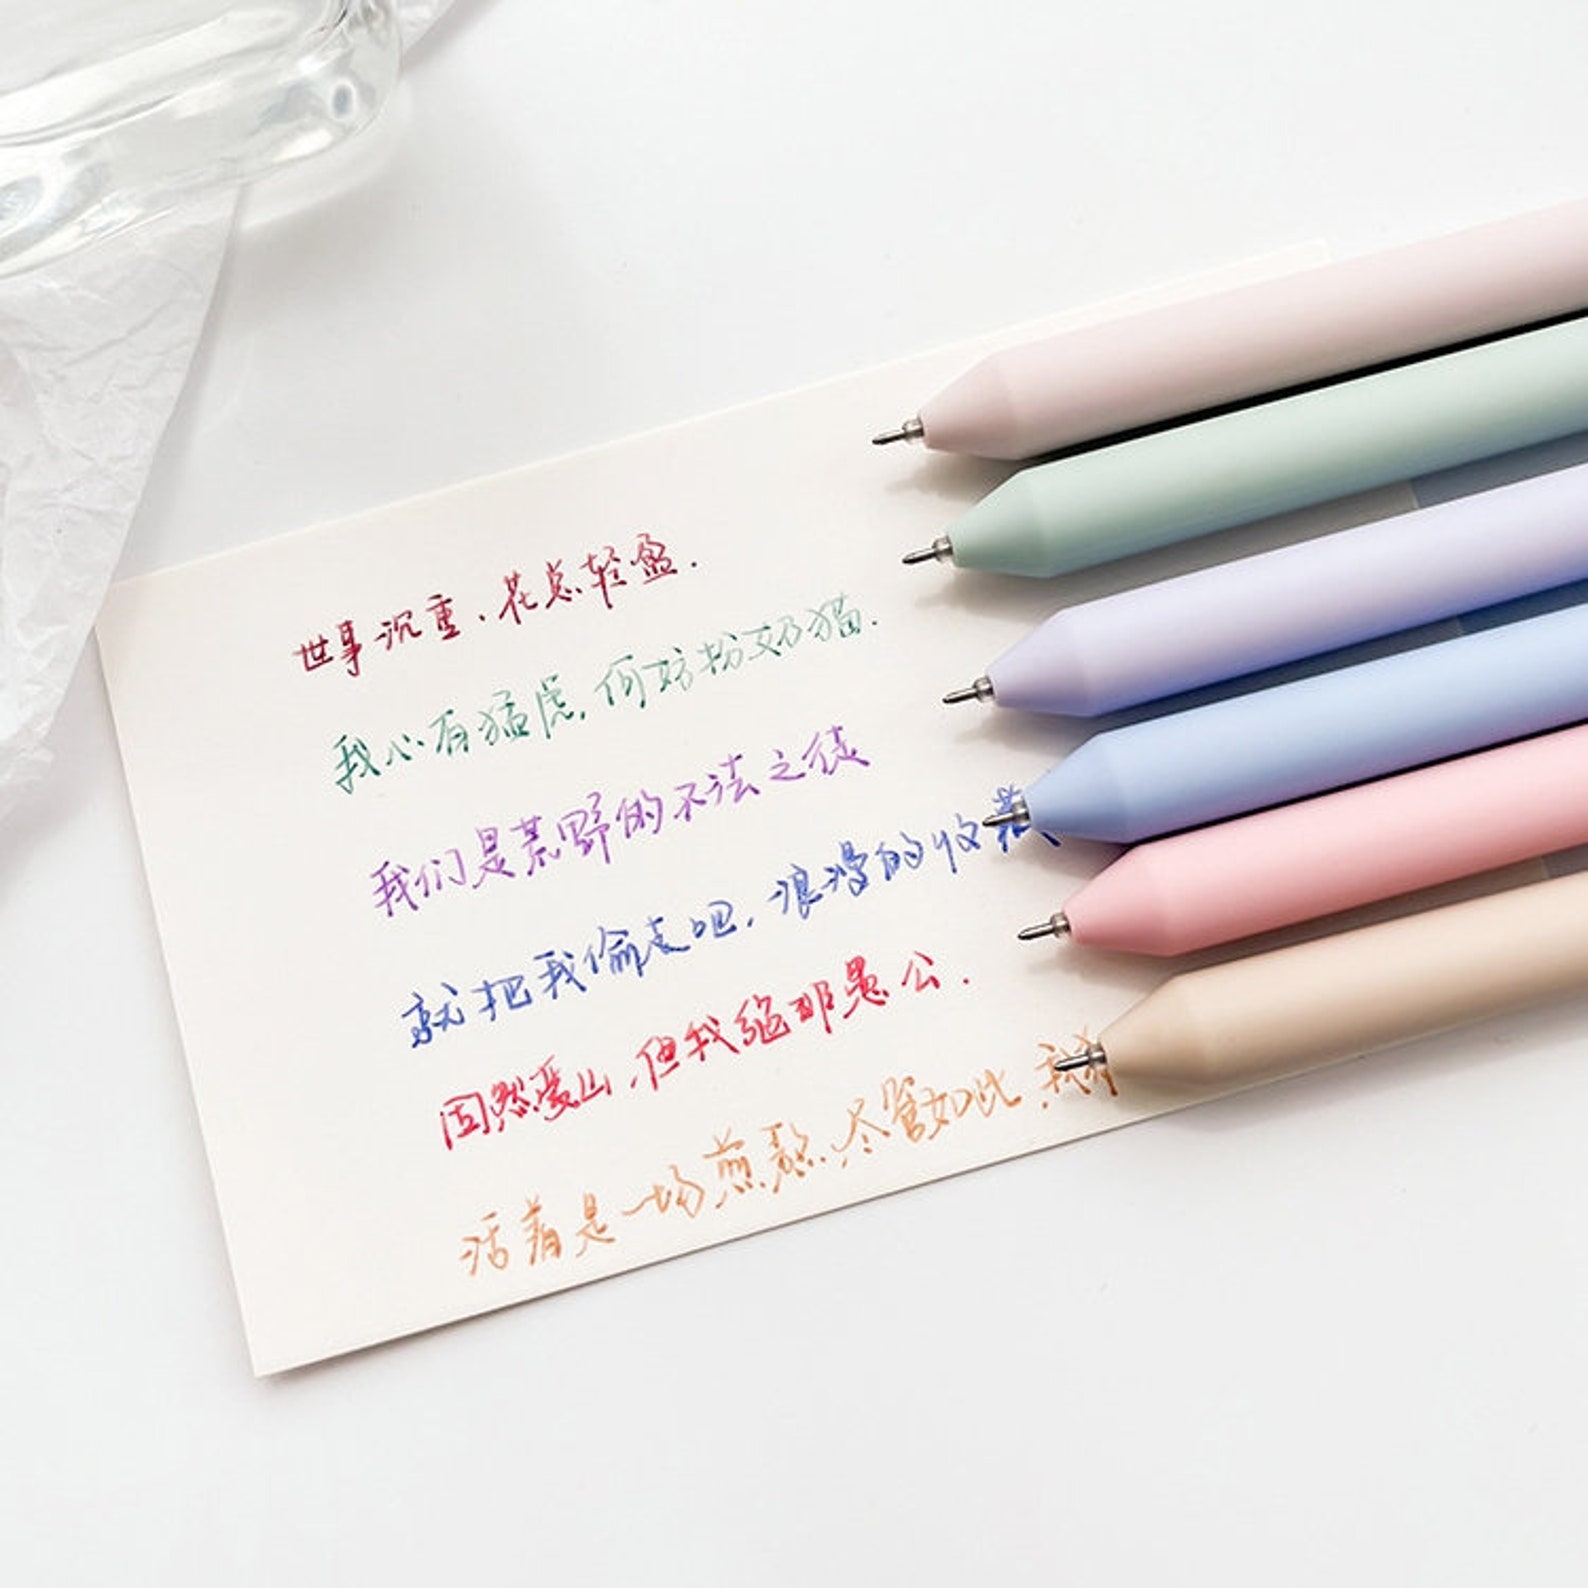 世事沉重,花总轻盈.
我心有猛虎,何妨扮奶猫.
我们是荒野的不法之徒
就把我偷走吧,浪漫的收藏
固然爱山,但我绝非愚公.
活着是一场煎熬.尽管如此,我